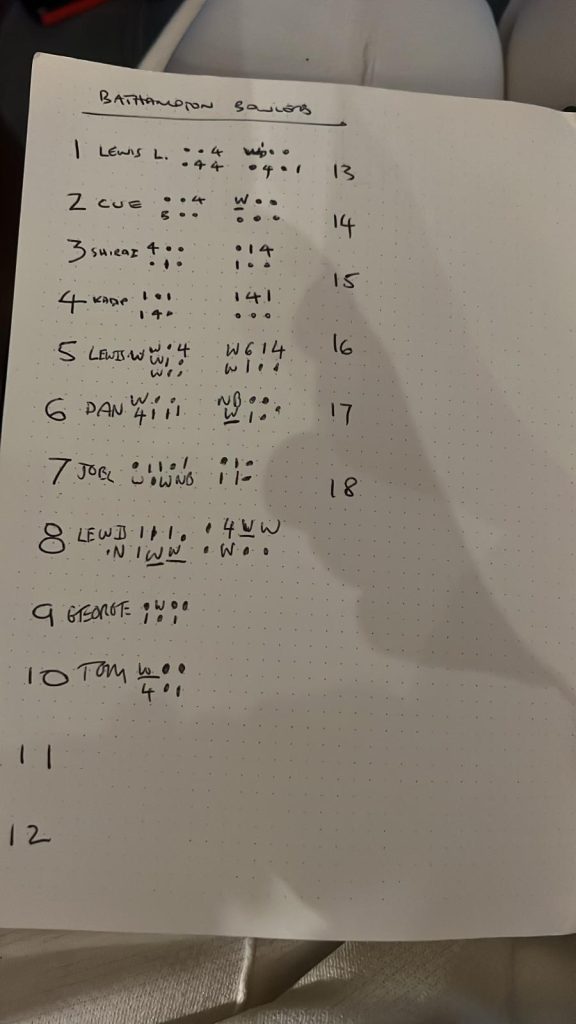 BATHAMPTON BOWLERS
1 LEWIS L. • • 4 • •
• 4 4 • 4 • 1 13
2 CUE • • 4 W • •
5 • • • • • 14
3 SHIRAZ 4 • • • 1 4
• 1 • 1 • • 15
4 1 • 1 1 4 1
1 4 • • • • 16
5 LEWIS W W • 4 W 6 1 4
W 1 • W 1 • •
W • •
6 DAN W • • NB • •
4 1 1 1 W 1 • • 17
7 JOEL • 1 1 • 1 • 1 •
W • W NB 1 1 • 18
8 LEWIS 1 1 1 • • 4 W W
• N 1 W W • W • •
9 GEORGE • W • •
1 • • 1
10 TOM W • •
4 • 1
11
12